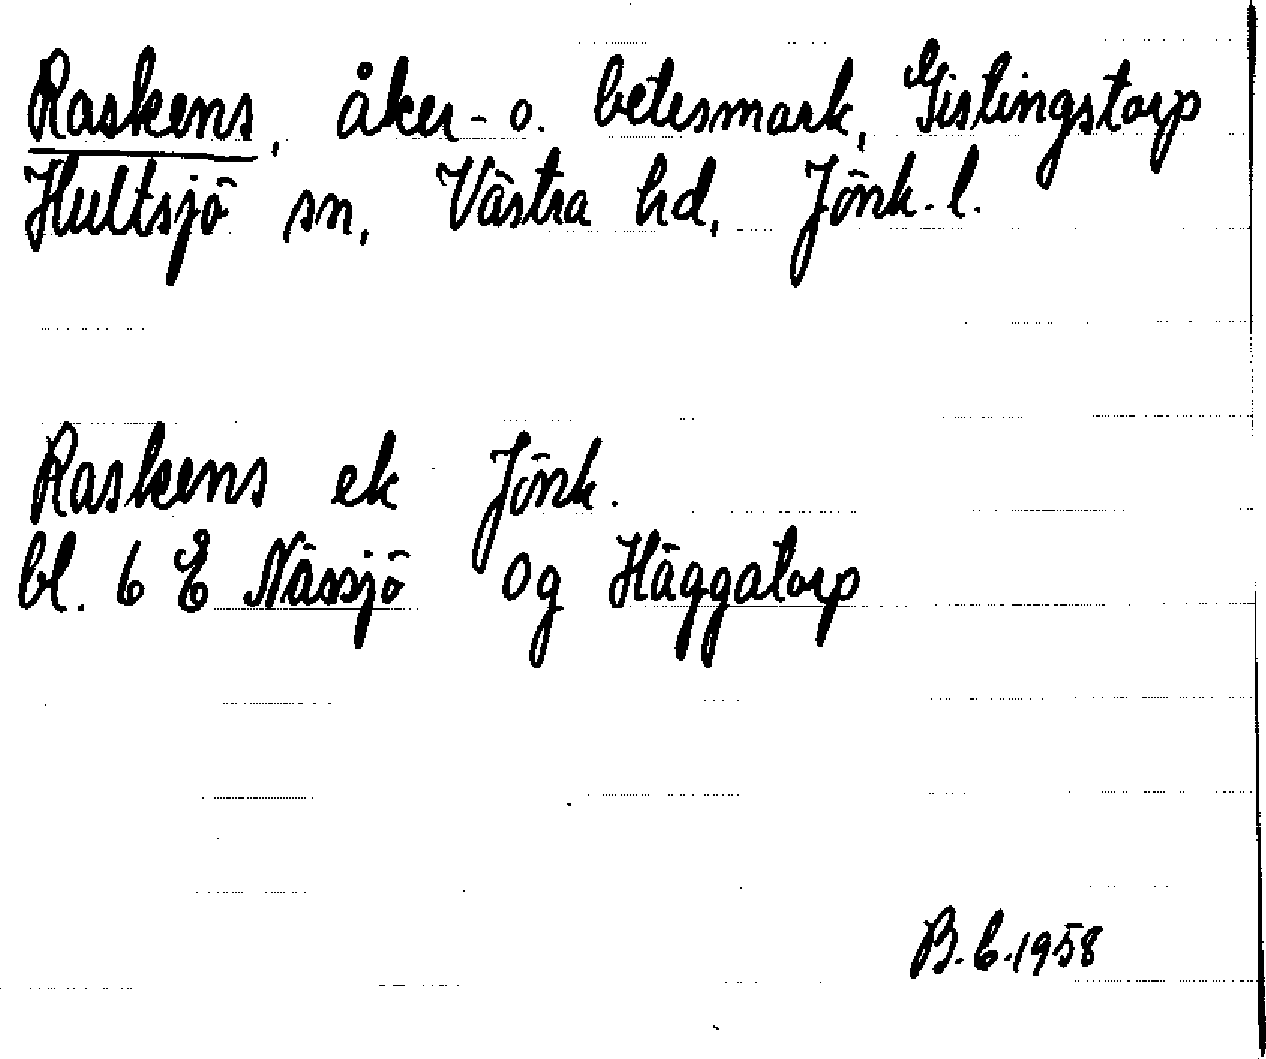 Raskens, åker- o. betesmark, Gislingstorp
Hultsjö sn, Västra hd, Jönk. l.
Raskens ek Jönk.
bl. 6 E Nässjö 0g Häggatorp
B.C.1958